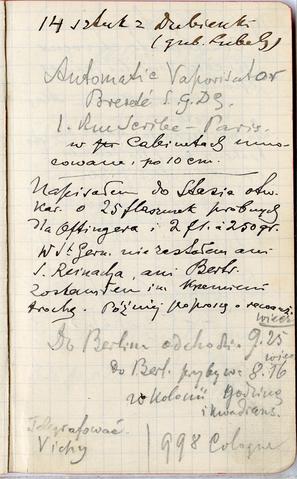 14 sztuk z Dubienki
(gub. Lubels)
Automatic Vaporisator
Breveté S.G.D.G.
1. Rue Scribe - Paris.
w Cabinetach umo-
cowane, po 10 cm.
Napisałem do Stasia otw.
kar. o 25 flaszek próbnych
dla Oftingera i 2 fl. à 250 gr.
W St Germ. nie zastałem ani
S. Reinacha, ani Bertr.
zostawiłem im Krzemieni
trochę. Później poproszę o
Do Berlina odchodzi 9.25 wiecz
do Berl. przybywa 8.16 wiecz
w Kolonii godzinę
i kwadrans.
Telegrafować
Vichy
998 Cologne